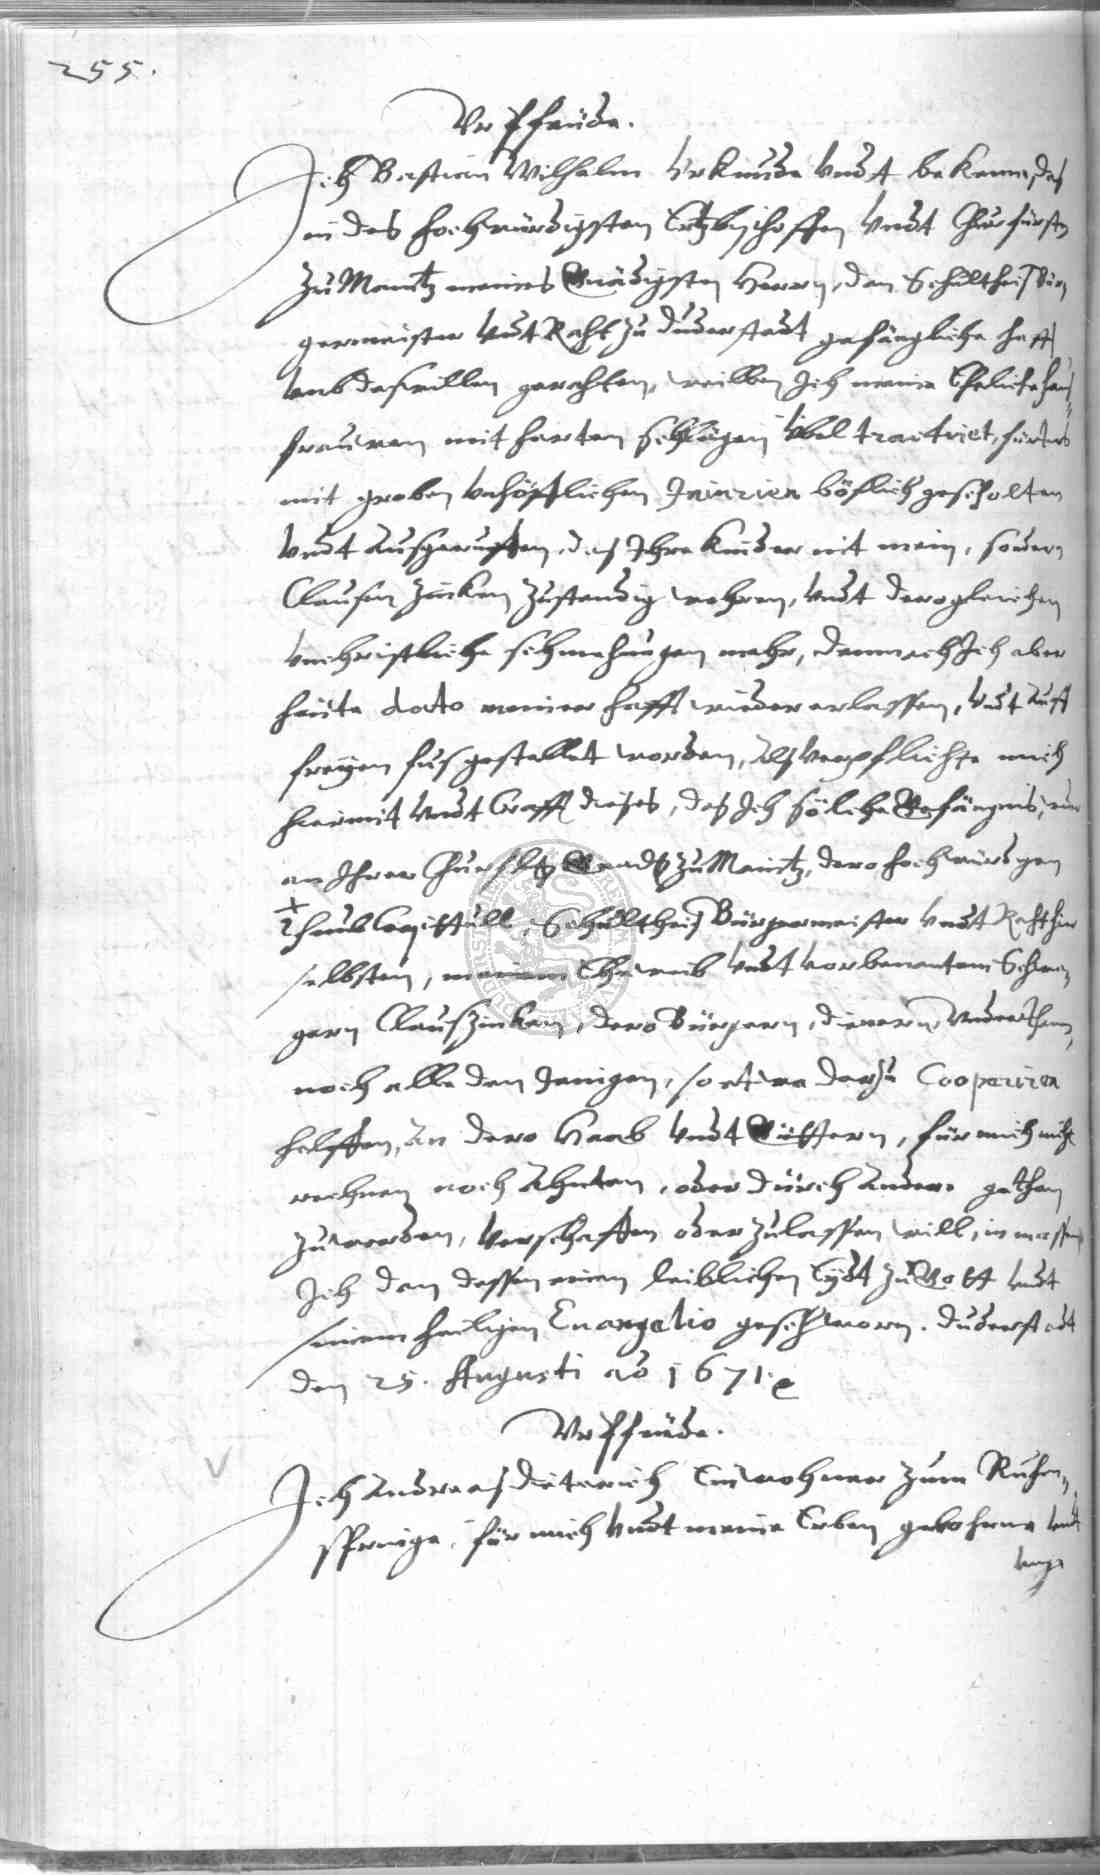 255.
Vrpfeude.
Ich Bastian Wilhelm Urkunde undt bekenne, daß
in des hochwürdigsten Ertzbischoffen undt Churfürsten
zu Maintz meines Gnädigsten Herrn, dan Schultheiß Bür
germeister undt Raht zu Duderstadt gefängliche hafft
umb deswillen gerahten, weillen Ich meine Eheliche hauß
frauwen mit harten schlägen übel tractiret, fürters
mit groben unhöfflichen Iniurien bößlich gescholten
undt ausgeruffen, daß Ihre Kinder nit mein, sondern
Clausen Zincken zustendig wehren, undt derogleichen
unchristliche schmehungen mehr, demnach Ich aber
heute dato meiner hafft wieder erlassen, undt auff
freyen fus gestellet worden, Alß verpflichte mich
hiermit undt Crafft dieses, daß Ich solche Gefängnis,
an Ihrer Churfl Gnadt zu Maintz, dero hochwürdigen
Thumb Capittull, Schultheiß Bürgermeister undt Raht hier
selbsten, meinem Eheweib undt vorbenantem Schwa
gern Claus Zincken, dero Bürgern, dienern, Underthanen,
noch alle den Jenigen, so etwa darzu Cooperiren
helffen, an dero Haab undt Güttern, für mich nicht
rechnen noch Ahnten, oder durch Andere gethan
zu werden, verschaffen oder zulassen will, in massen
Ich dan dessen einen leiblichen Eydt zu Gott undt
seinem heiligen Euangelio geschworn. Duderstadt
den 25. Augusti ao 1671.
Vrpfeude.
Ich Andreas Dieterich Einwohner zum Ruhen
springe, für mich undt meine Erben gebohrne undt
unge